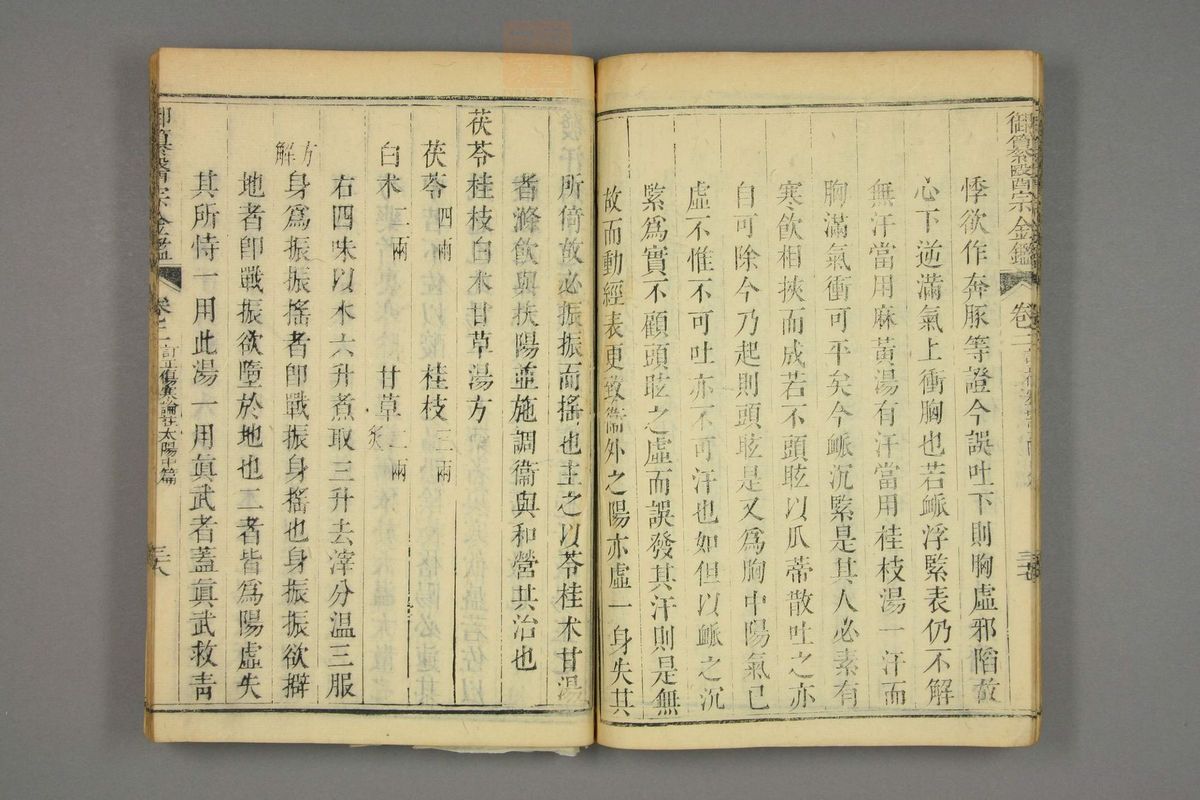 御纂醫宗金鑑 卷二
悸欲作奔豚等證今誤吐下則胸虛邪陷故
心下逆滿氣上衝胸也若脈浮緊表仍不解
無汗當用麻黃湯有汗當用桂枝湯一汗而
胸滿氣衝可平矣今脈沉緊是其人必素有
寒飮相挾而成若不頭眩以瓜蒂散吐之亦
自可除今乃起則頭眩是又爲胸中陽氣已
虛不惟不可吐亦不可汗也如但以脈之沉
緊爲實不顧頭眩之虛而誤發其汗則是無
故而動經表更致衞外之陽亦虛一身失其
所倚故必振振而搖也主之以苓桂朮甘湯
者滌飮與扶陽並施調衞與和營共治也
茯苓桂枝白朮甘草湯方
茯苓四兩 桂枝三兩
白朮二兩 甘草二兩炙
右四味以水六升煮取三升去滓分温三服
方解 身爲振振搖者卽戰振身搖也身振振欲擗
地者卽戰振欲墮於地也二者皆爲陽虛失
其所恃一用此湯一用眞武者蓋眞武救靑
御纂醫宗金鑑 卷二 訂正傷寒論註太陽中篇 三八